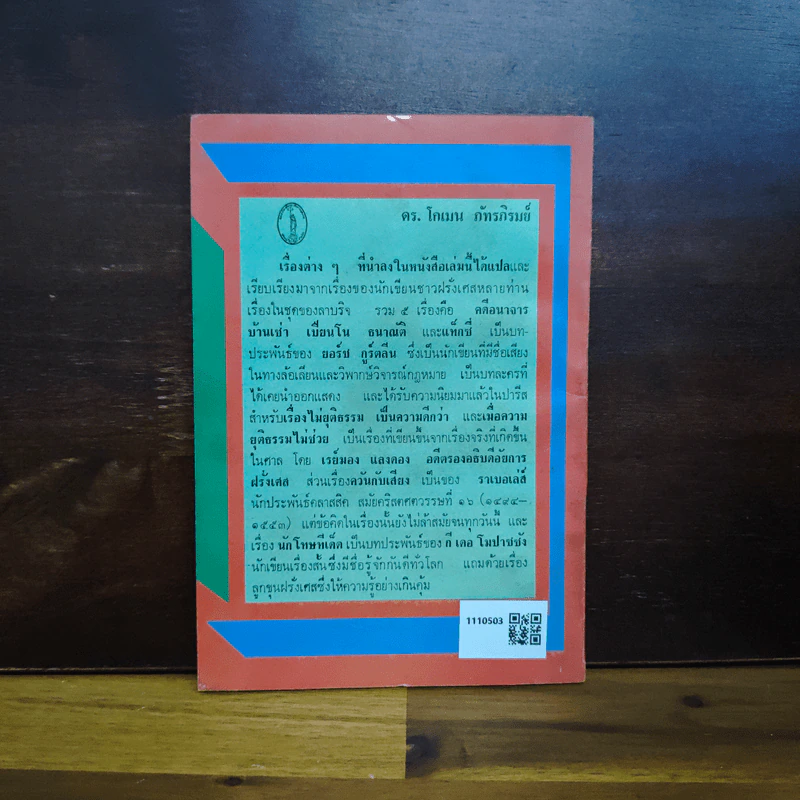 ดร. โกเมน ภัทรภิรมย์
เรื่องต่าง ๆ ที่นำลงในหนังสือเล่มนี้ได้แปลและ
เรียบเรียงมาจากเรื่องของนักเขียนชาวฝรั่งเศสหลายท่าน
เรื่องในชุดของลาบริจ รวม ๕ เรื่องคือ คดีอนาจาร
บ้านเช่า เบียนโน ธนาณัติ และแท็กซี่ เป็นบท-
ประพันธ์ของ ยอร์ช กูร์ตลีน ซึ่งเป็นนักเขียนที่มีชื่อเสียง
ในทางล้อเลียนและวิพากษ์วิจารณ์กฎหมาย เป็นบทละครที่
ได้เคยนำออกแสดง และได้รับความนิยมมาแล้วในปารีส
สำหรับเรื่องไม่ยุติธรรม เป็นความดีกว่า และเมื่อความ
ยุติธรรมไม่ช่วย เป็นเรื่องที่เขียนขึ้นจากเรื่องจริงที่เกิดขึ้น
ในศาล โดย เรย์มอง แลงดอง อดีตรองอธิบดีอัยการ
ฝรั่งเศส ส่วนเรื่องควันกับเสียง เป็นของ ราเบอเล่ส์
นักประพันธ์คลาสสิค สมัยคริสตศตวรรษที่ ๑๖ (๑๔๙๔–
๑๕๕๓) แต่ข้อคิดในเรื่องนั้นยังไม่ล้าสมัยจนทุกวันนี้ และ
เรื่อง นักโทษทีเด็ด เป็นบทประพันธ์ของ กี เดอ โมปาซซัง
นักเขียนเรื่องสั้นซึ่งมีชื่อรู้จักกันดีทั่วโลก แถมด้วยเรื่อง
ลูกขุนฝรั่งเศสซึ่งให้ความรู้อย่างเกินคุ้ม
1110503